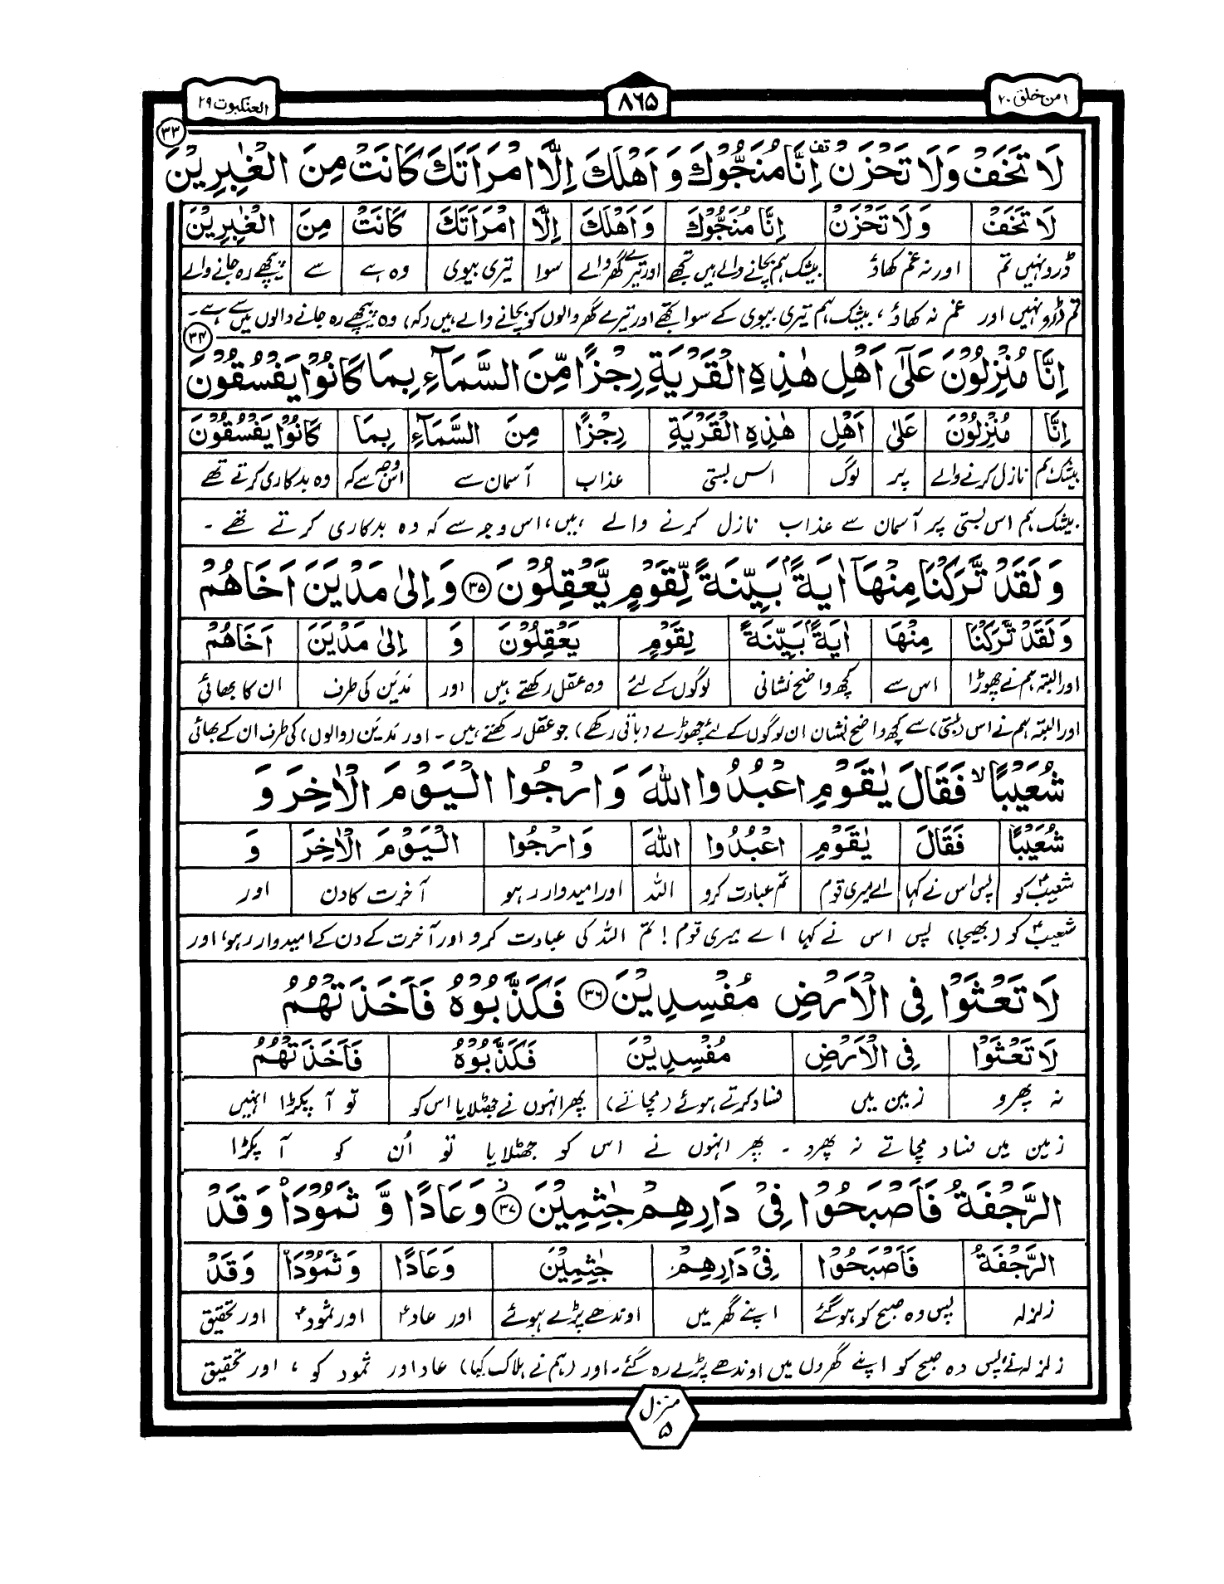 امن خلق ٢٠
٨٦٥
العنكبوت ٢٩
لَا تَخَفْ وَلَا تَحْزَنْ ۫ اِنَّا مُنَجُّوْكَ وَ اَهْلَكَ اِلَّا امْرَاَتَكَ كَانَتْ مِنَ الْغٰبِرِيْنَ ٣٣
لَا تَخَفْ وَلَا تَحْزَنْ اِنَّا مُنَجُّوْكَ وَ اَهْلَكَ اِلَّا امْرَاَتَكَ كَانَتْ مِنَ الْغٰبِرِيْنَ
ڈرو نہیں تم اور نہ غم کھاؤ بیشک ہم بچانے والے ہیں تجھے اور تیرے گھر والے سوا تیری بیوی وہ ہے سے پیچھے رہ جانے والے
تم ڈرو نہیں اور غم نہ کھاؤ، بیشک ہم تیری بیوی کے سوا تجھے اور تیرے گھر والوں کو بچانے والے ہیں (کہ) وہ پیچھے رہ جانے والوں میں سے ہے۔
اِنَّا مُنْزِلُوْنَ عَلٰٓى اَهْلِ هٰذِهِ الْقَرْيَةِ رِجْزًا مِّنَ السَّمَآءِ بِمَا كَانُوْا يَفْسُقُوْنَ ٣٤
اِنَّا مُنْزِلُوْنَ عَلٰى اَهْلِ هٰذِهِ الْقَرْيَةِ رِجْزًا مِنَ السَّمَآءِ بِمَا كَانُوْا يَفْسُقُوْنَ
بیشک ہم نازل کرنے والے پر لوگ اس بستی عذاب آسمان سے اس وجہ سے کہ وہ بدکاری کرتے تھے
بیشک ہم اس بستی پر آسمان سے عذاب نازل کرنے والے ہیں، اس وجہ سے کہ وہ بدکاری کرتے تھے ۔
وَ لَقَدْ تَّرَكْنَا مِنْهَآ اٰيَةًۢ بَيِّنَةً لِّقَوْمٍ يَّعْقِلُوْنَ ٣٥ وَ اِلٰى مَدْيَنَ اَخَاهُمْ
وَ لَقَدْ تَّرَكْنَا مِنْهَا اٰيَةًۢ بَيِّنَةً لِقَوْمٍ يَعْقِلُوْنَ وَ اِلٰى مَدْيَنَ اَخَاهُمْ
اور البتہ ہم نے چھوڑا اس سے کچھ واضح نشانی لوگوں کے لئے وہ عقل رکھتے ہیں اور مدین کی طرف ان کا بھائی
اور البتہ ہم نے اس (بستی) سے کچھ واضح نشان ان لوگوں کے لئے چھوڑے (باقی رکھے) جو عقل رکھتے ہیں ۔ اور مدین (والوں) کی طرف ان کے بھائی
شُعَيْبًا ۙ فَقَالَ يٰقَوْمِ اعْبُدُوا اللّٰهَ وَ ارْجُوا الْيَوْمَ الْاٰخِرَ وَ
شُعَيْبًا فَقَالَ يٰقَوْمِ اعْبُدُوا اللّٰهَ وَ ارْجُوا الْيَوْمَ الْاٰخِرَ وَ
شعیبؑ کو پس اس نے کہا اے میری قوم تم عبادت کرو اللہ اور امیدوار رہو آخرت کا دن اور
شعیبؑ کو (بھیجا) پس اس نے کہا اے میری قوم! تم اللہ کی عبادت کرو اور آخرت کے دن کے امیدوار رہو، اور
لَا تَعْثَوْا فِى الْاَرْضِ مُفْسِدِيْنَ ٣٦ فَكَذَّبُوْهُ فَاَخَذَتْهُمُ
لَا تَعْثَوْا فِى الْاَرْضِ مُفْسِدِيْنَ فَكَذَّبُوْهُ فَاَخَذَتْهُمُ
نہ پھرو زمین میں فساد کرتے ہوئے (مچاتے) پھر انہوں نے جھٹلایا اس کو تو آ پکڑا انہیں
زمین میں فساد مچاتے نہ پھرو ۔ پھر انہوں نے اس کو جھٹلایا تو اُن کو آ پکڑا
الرَّجْفَةُ فَاَصْبَحُوْا فِىْ دَارِهِمْ جٰثِمِيْنَ ٣٧ وَ عَادًا وَّ ثَمُوْدَا۟ وَ قَدْ
الرَّجْفَةُ فَاَصْبَحُوْا فِىْ دَارِهِمْ جٰثِمِيْنَ وَ عَادًا وَ ثَمُوْدَا۟ وَ قَدْ
زلزلہ پس وہ صبح کو ہو گئے اپنے گھر میں اوندھے پڑے ہوئے اور عاد اور ثمود اور تحقیق
زلزلہ نے، پس وہ صبح کو اپنے گھروں میں اوندھے پڑے رہ گئے۔ اور (ہم نے ہلاک کیا) عاد اور ثمود کو ، اور تحقیق
منزل
٥